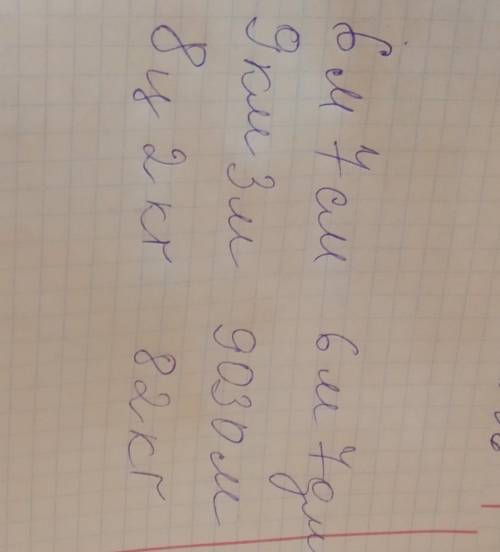 6 м 7 см 6 м 7 дм
9 км 3 м 9030 м
8 ц 2 кг 82 кг